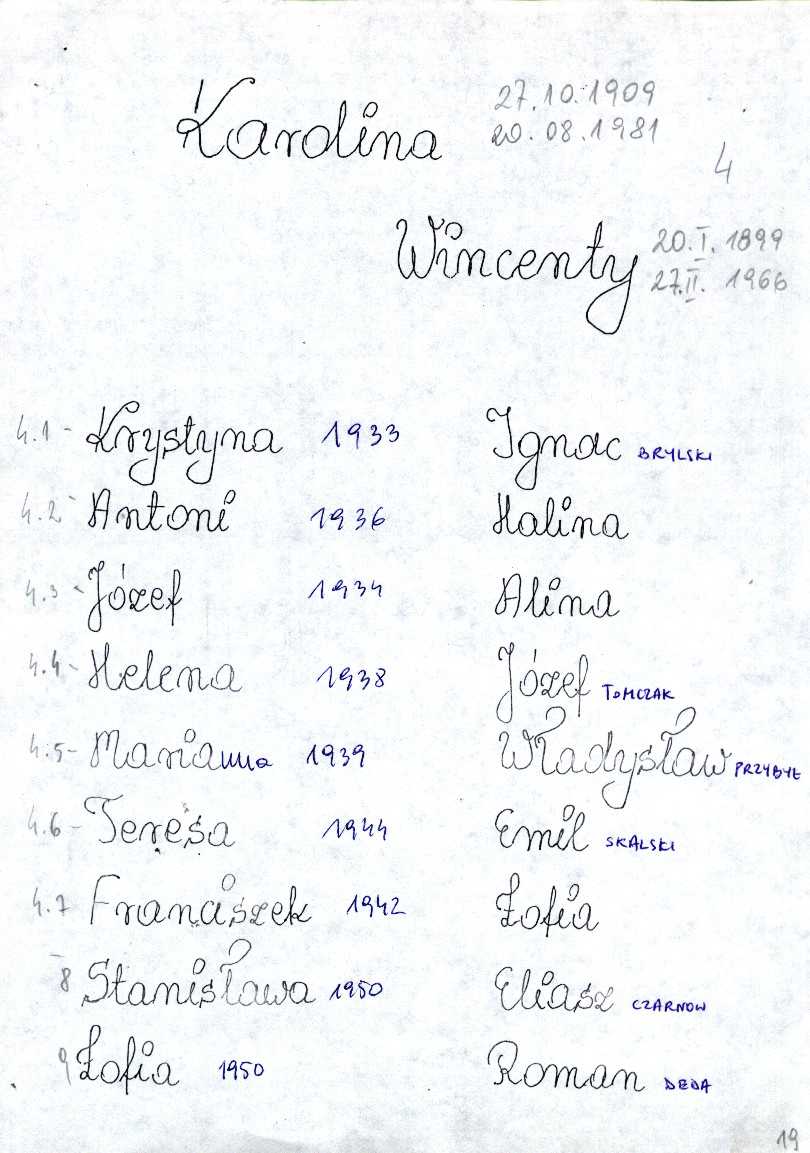 Karolina 27.10.1909
20.08.1981
4
Wincenty 20.I.1899
27.II.1966
4.1 - Krystyna 1933 Ignac BRYLSKI
4.2 - Antoni 1936 Halina
4.3 - Józef 1934 Alina
4.4 - Helena 1938 Józef TOMCZAK
4.5 - Marianna 1939 Władysław PRZYBYŁ
4.6 - Teresa 1944 Emil SKALSKI
4.7 Franciszek 1942 Zofia
8 Stanisława 1950 Eliasz CZARNOW
9 Zofia 1950 Roman DEDA
19